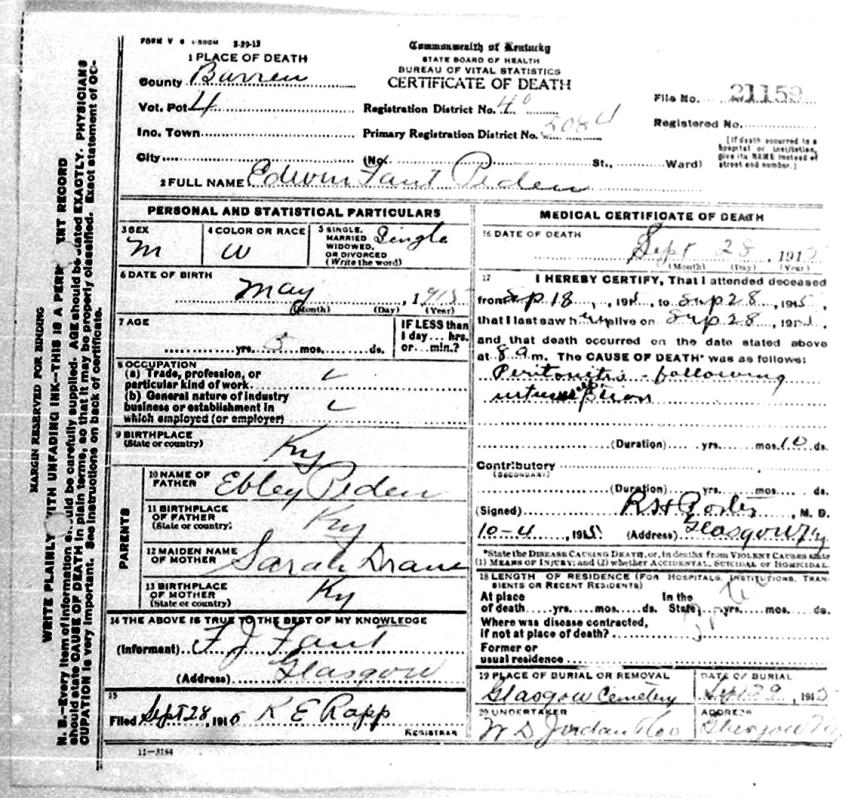 MARGIN RESERVED FOR BINDING
WRITE PLAINLY WITH UNFADING INK—THIS IS A PERM NT RECORD
N. B.—Every item of information should be carefully supplied. AGE should be stated EXACTLY. PHYSICIANS
should state CAUSE OF DEATH in plain terms, so that it may be properly classified. Exact statement of OC-
CUPATION is very important. See instructions on back of certificate.
FORM V 3-29-13
Commonwealth of Kentucky
STATE BOARD OF HEALTH
BUREAU OF VITAL STATISTICS
CERTIFICATE OF DEATH
1 PLACE OF DEATH
County Barren
Vot. Pct 4
Inc. Town
City (No. St., Ward)
Registration District No. 40
Primary Registration District No. 5084
File No. 21159
Registered No.
[If death occurred in a
hospital or institution,
give its NAME instead of
street and number.]
2 FULL NAME Edwin Fant Peden
PERSONAL AND STATISTICAL PARTICULARS
3 SEX
M
4 COLOR OR RACE
W
5 SINGLE,
MARRIED
WIDOWED,
OR DIVORCED
(Write the word)
Single
6 DATE OF BIRTH
May , 1915
(Month) (Day) (Year)
7 AGE
yrs. 5 mos. ds.
IF LESS than
1 day... hrs.
or... min.?
8 OCCUPATION
(a) Trade, profession, or
particular kind of work
(b) General nature of industry
business or establishment in
which employed (or employer)
9 BIRTHPLACE
(State or country)
Ky
PARENTS
10 NAME OF
FATHER
Ebley Peden
11 BIRTHPLACE
OF FATHER
(State or country)
Ky
12 MAIDEN NAME
OF MOTHER
Sarah Drane
13 BIRTHPLACE
OF MOTHER
(State or country)
Ky
14 THE ABOVE IS TRUE TO THE BEST OF MY KNOWLEDGE
(Informant) F J Fant
(Address) Glasgow
15
Filed Sept 28, 1915 K E Rapp
REGISTRAR
11—3184
MEDICAL CERTIFICATE OF DEATH
16 DATE OF DEATH
Sept 28, 1915
(Month) (Day) (Year)
17 I HEREBY CERTIFY, That I attended deceased
from Sep 18, 1915, to Sep 28, 1915,
that I last saw h alive on Sep 28, 191
and that death occurred on the date stated above
at 8 a m. The CAUSE OF DEATH* was as follows:
Peritonitis - following
(Duration) yrs. mos. 10 ds.
Contributory
(SECONDARY)
(Duration) yrs. mos. ds.
(Signed) R H Porter, M. D.
10-4, 1915 (Address) Glasgow Ky
*State the DISEASE CAUSING DEATH, or, in deaths from VIOLENT CAUSES state
(1) MEANS OF INJURY; and (2) whether ACCIDENTAL, SUICIDAL or HOMICIDAL.
18 LENGTH OF RESIDENCE (FOR HOSPITALS, INSTITUTIONS, TRAN-
SIENTS OR RECENT RESIDENTS)
At place
of death yrs. mos. ds.
In the
State yrs. mos. ds.
Where was disease contracted,
if not at place of death?
Former or
usual residence
19 PLACE OF BURIAL OR REMOVAL
Glasgow Cemetery
DATE OF BURIAL
Sept 29, 1915
20 UNDERTAKER
W D Jordan & Co
ADDRESS
Glasgow Ky